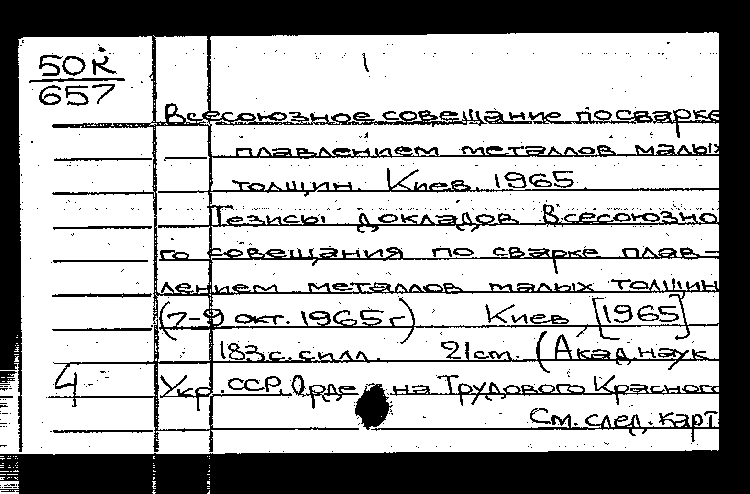 50К
657
Всесоюзное совещание по сварке
плавлением металлов малых
толщин. Киев. 1965
Тезисы докладов Всесоюзно
го совещания по сварке плав-
лением металлов малых толщин
(7-9 окт. 1965г) Киев, [1965]
183с. с илл. 21 cm. (Акад. наук
4 Укр. ССР. Орде на Трудового Красного
См. след. карт